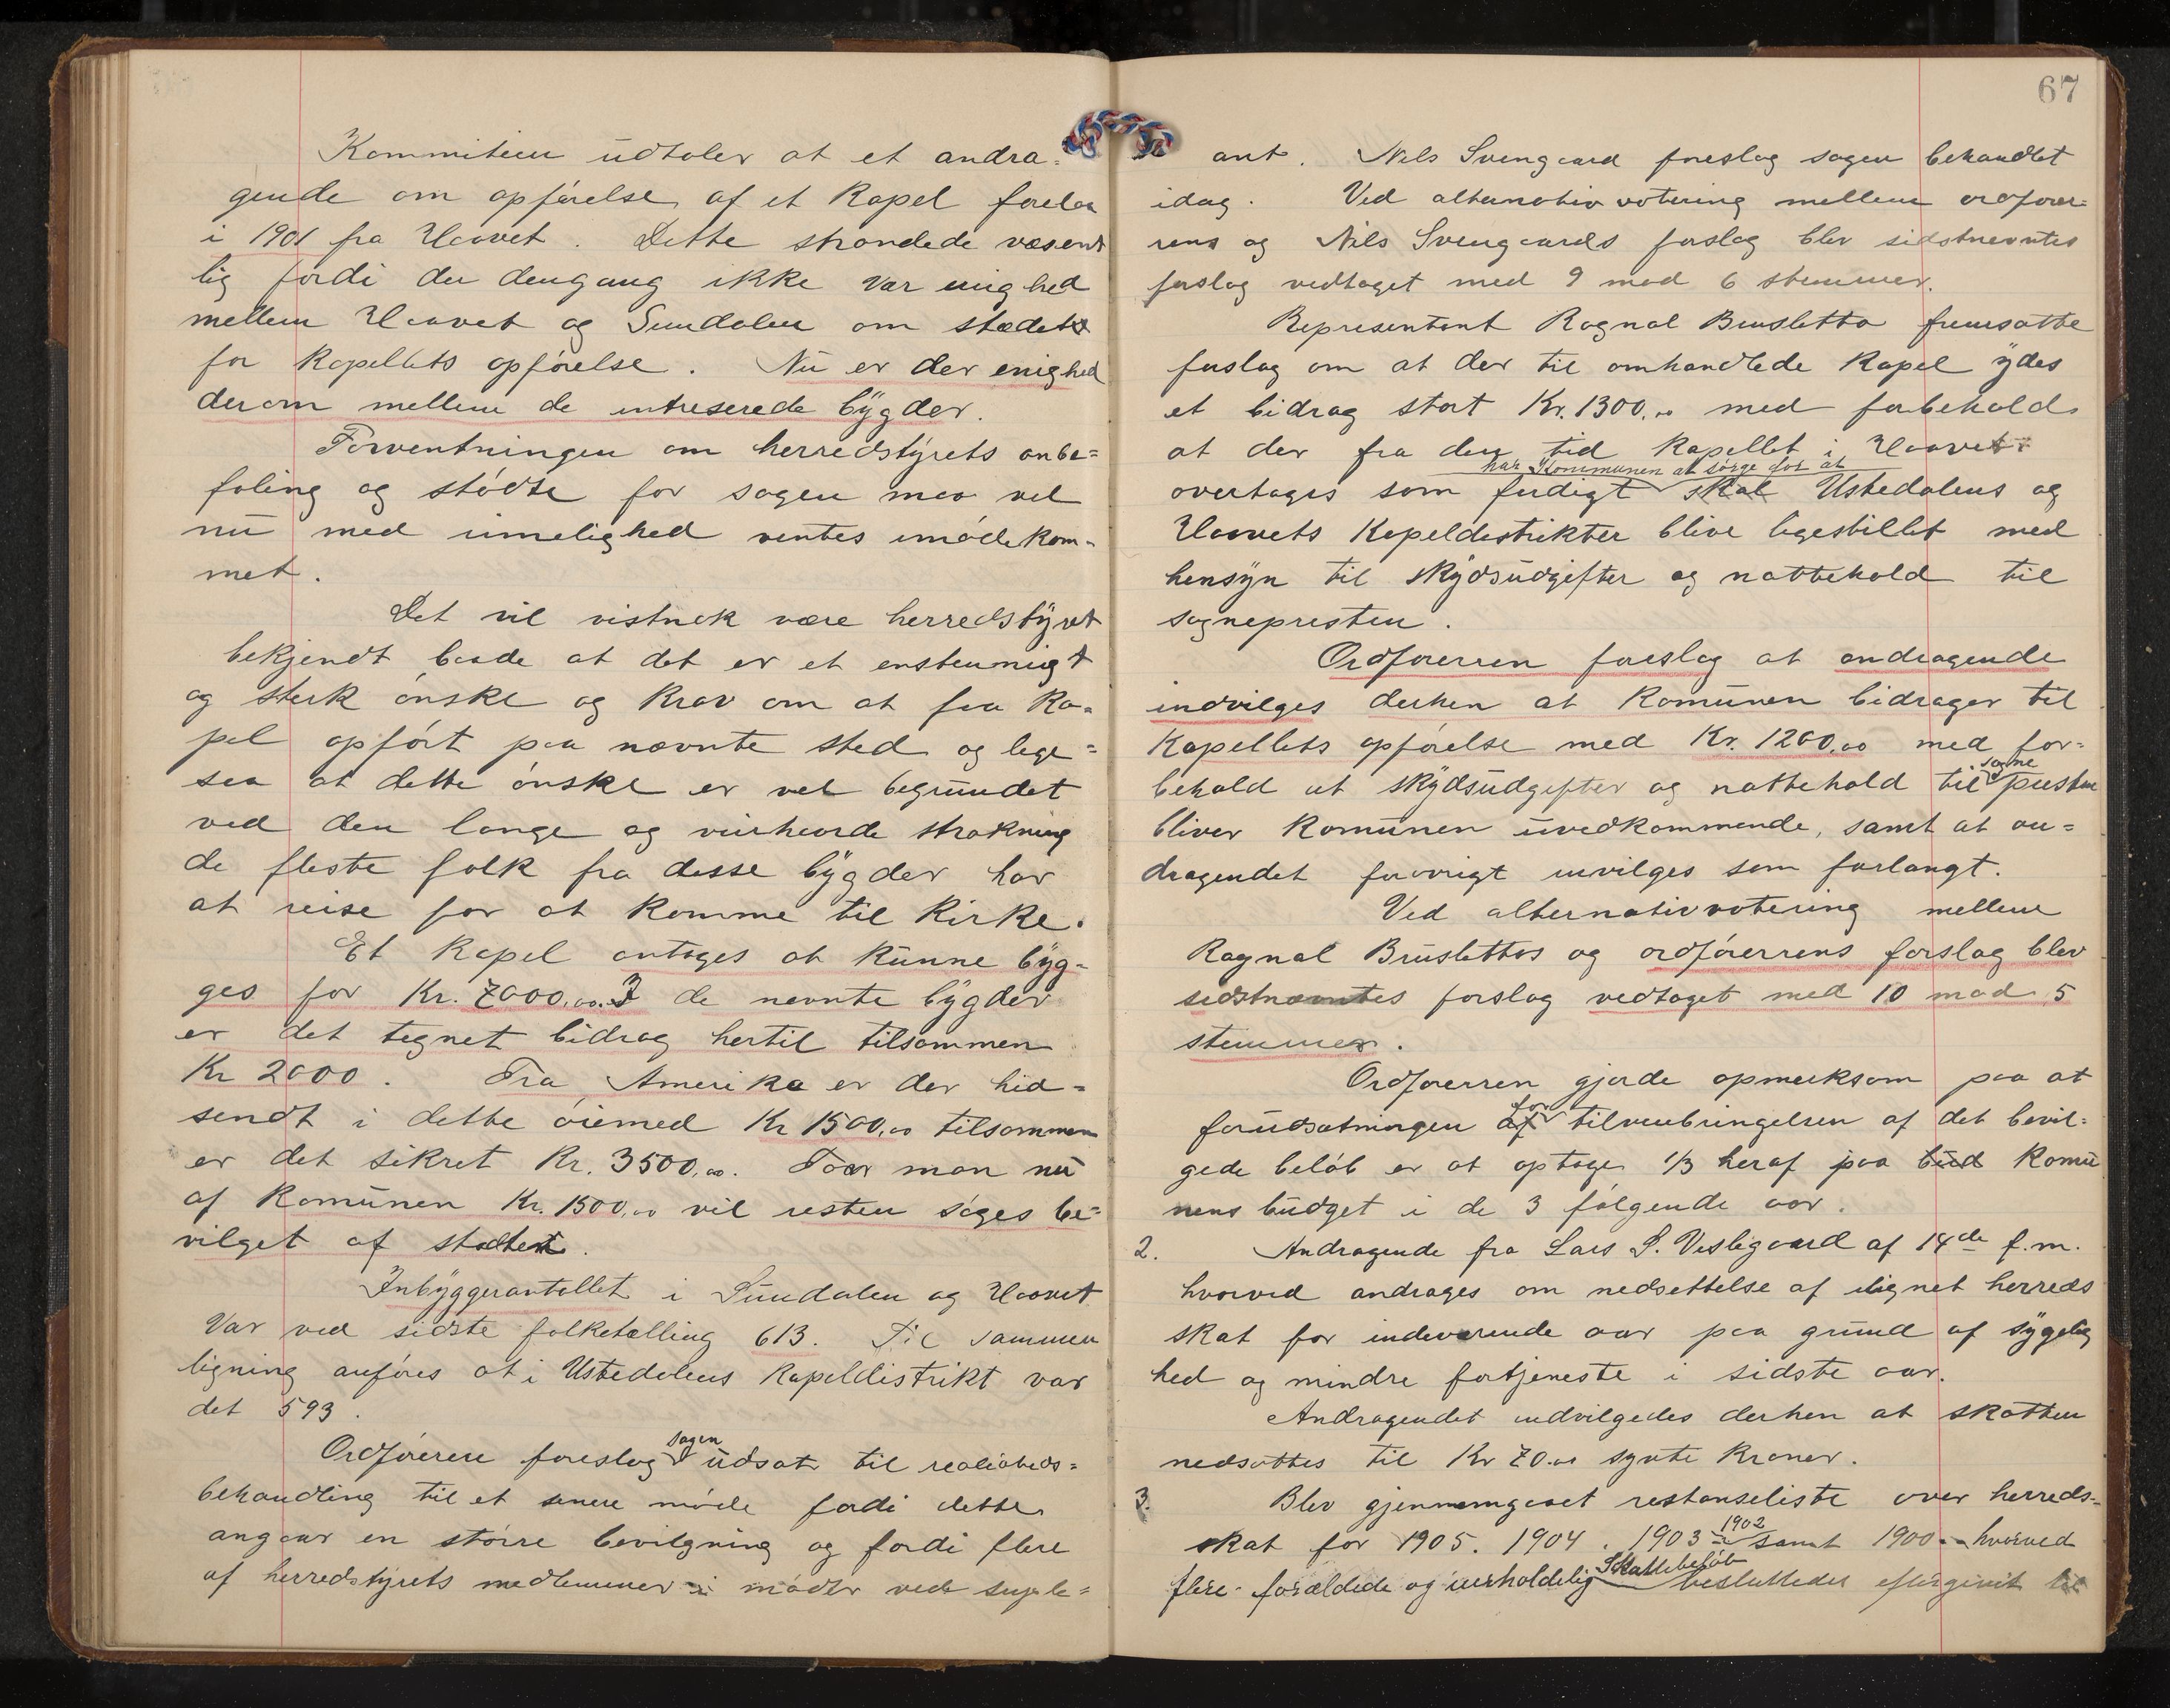 Kommiteen udtaler at et andra-
gende om opførelse af et Kapel forelaa
i 1901 fra Haavet. Dette strandede væsent
lig fordi der dengang ikke var enighed
mellem Haavet og Sundalen om stædet
for Kapellets opførelse. Nu er der enighed
derom mellem de intreserede bygder.
Forventningen om herredstyrets anbe=
faling og støtte for sagen maa vel
nu med rimelighed ventes imødekom-
met.
Det vil vistnok være herredstyret
bekjendt baade at det er et enstemmigt
og sterk ønske og krav om at faa Ka-
pel opført paa nævnte sted og lige=
saa at dette ønske er vel begrundet
ved den lange og veirhaarde strækning
de fleste folk fra disse bygder har
at reise for at komme til Kirke.
Et Kapel antages at kunne byg-
ges for Kr. 7000.00. I de nevnte bygder
er det tegnet bidrag hertil tilsammen
Kr 2000. Fra Amerika er der hid=
sendt i dette øiemed Kr 1500.00 tilsammen
er det sikret Kr. 3500.00. Faar man nu
af Komunen Kr. 1500.00 vil resten søges be=
vilget af
Inbyggerantallet i Sundalen og Haavet
Var ved sidste folketælling 613. Til sammen
ligning anføres at i Ustedalens Kapeldistrikt var
det 593.
Ordføreren foreslog sagen udsat til realiteds=
behandling til et senere møde fordi dette
angaar en større bevilgning og fordi flere
af herredstyrets medlemmer i mødte ved suple=
67
ant. Nils Svengaard foreslog sagen behandlet
idag. Ved alternativ votering mellem ordfører=
rens og Nils Svengaards forslag blev sidstnevntes
forslag vedtaget med 9 mod 6 stemmer.
Representant Ragnal Brusletto fremsatte
forslag om at der til omhandlede Kapel ydes
et bidrag stort Kr. 1300.00 med forbehold
at der fra den tid Kapellet i Haavet
har Kommunen at sørge for at
overtages som ferdigt skal Ustedalens og
Haavets Kapeldistrikter blive ligestillet med
hensyn til skydsudgifter og nattehold til
sognepresten.
Ordførerren foreslog at andragende
indvilges derhen at Komunen bidrager til
Kapellets opførelse med Kr. 1200.00 med for=
behold at skydsudgifter og nattehold til sogne presten
bliver Komunen uvedkommende, samt at an=
dragendet forøvrigt invilges som forlangt.
Ved alternativvotering mellem
Ragnal Bruslettos og ordførerrens forslag blev
sidstnævntes forslag vedtaget med 10 mod 5
stemmer.
Ordførerren gjorde opmerksom paa at
forudsætningen af for tilveiebringelsen af det bevil=
gede beløb er at optage 1/3 heraf paa bud Komu
nens budget i de 3 følgende aar.
2. Andragende fra Lars L. Vesligaard af 14de f.m.
hvorved andrages om nedsettelse af ilignet herreds
skat for indeværende aar paa grund af sygelig
hed og mindre fortjeneste i sidste aar.
Andragendet indvilgedes derhen at skatten
nedsattes til Kr 70.00 sytte Kroner.
3. Blev gjennemgaaet restanseliste over herreds=
skat for 1905. 1904. 1903 1902 samt 1900 hvorved
flere forældede og uerholdelig Skattebeløb besluttedes eftergivet til